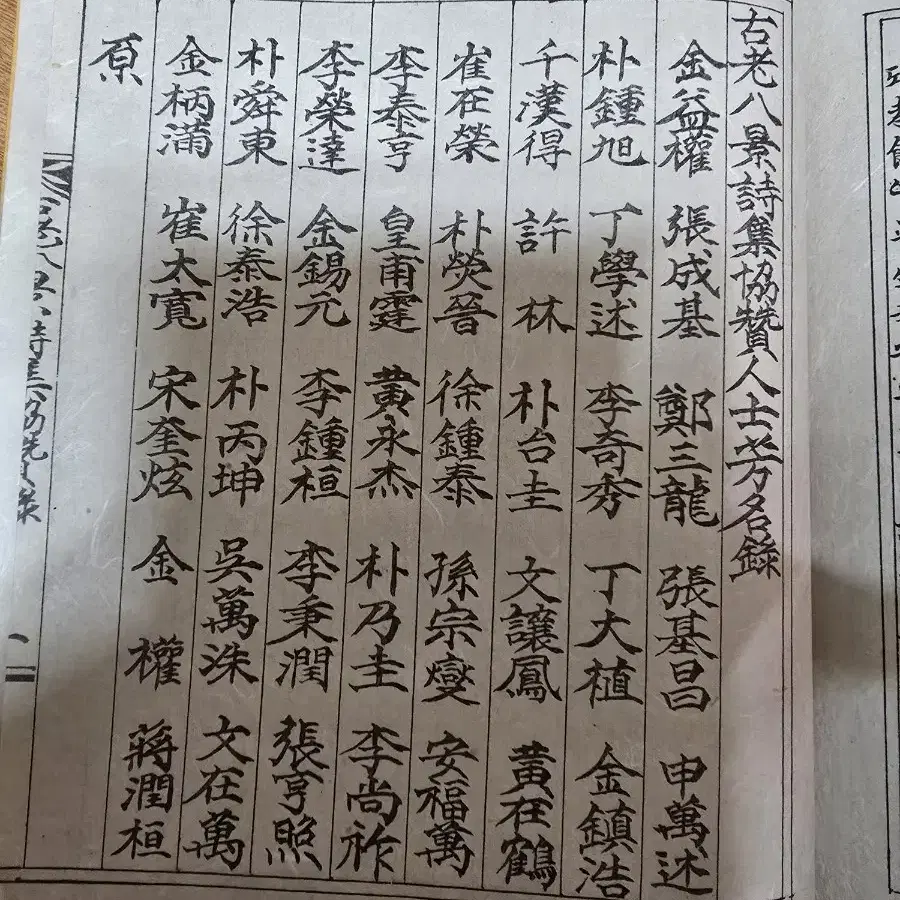 古老八景詩集協贊人士芳名錄
金益權 張成基 鄭三龍 張基昌 申萬述
朴鍾旭 丁學述 李奇秀 丁大植 金鎮浩
千漢得 許林 朴台圭 文讓鳳 黃在鶴
崔在榮 朴熒晉 徐鍾泰 孫宗燮 安福萬
李泰亨 皇甫霆 黃永杰 朴乃圭 李尚祚
李榮達 金錫元 李鍾桓 李秉潤 張亨照
朴舜東 徐泰浩 朴丙坤 吳萬洙 文在萬
金柄滿 崔大寬 宋奎炫 金權 蔣潤桓
原